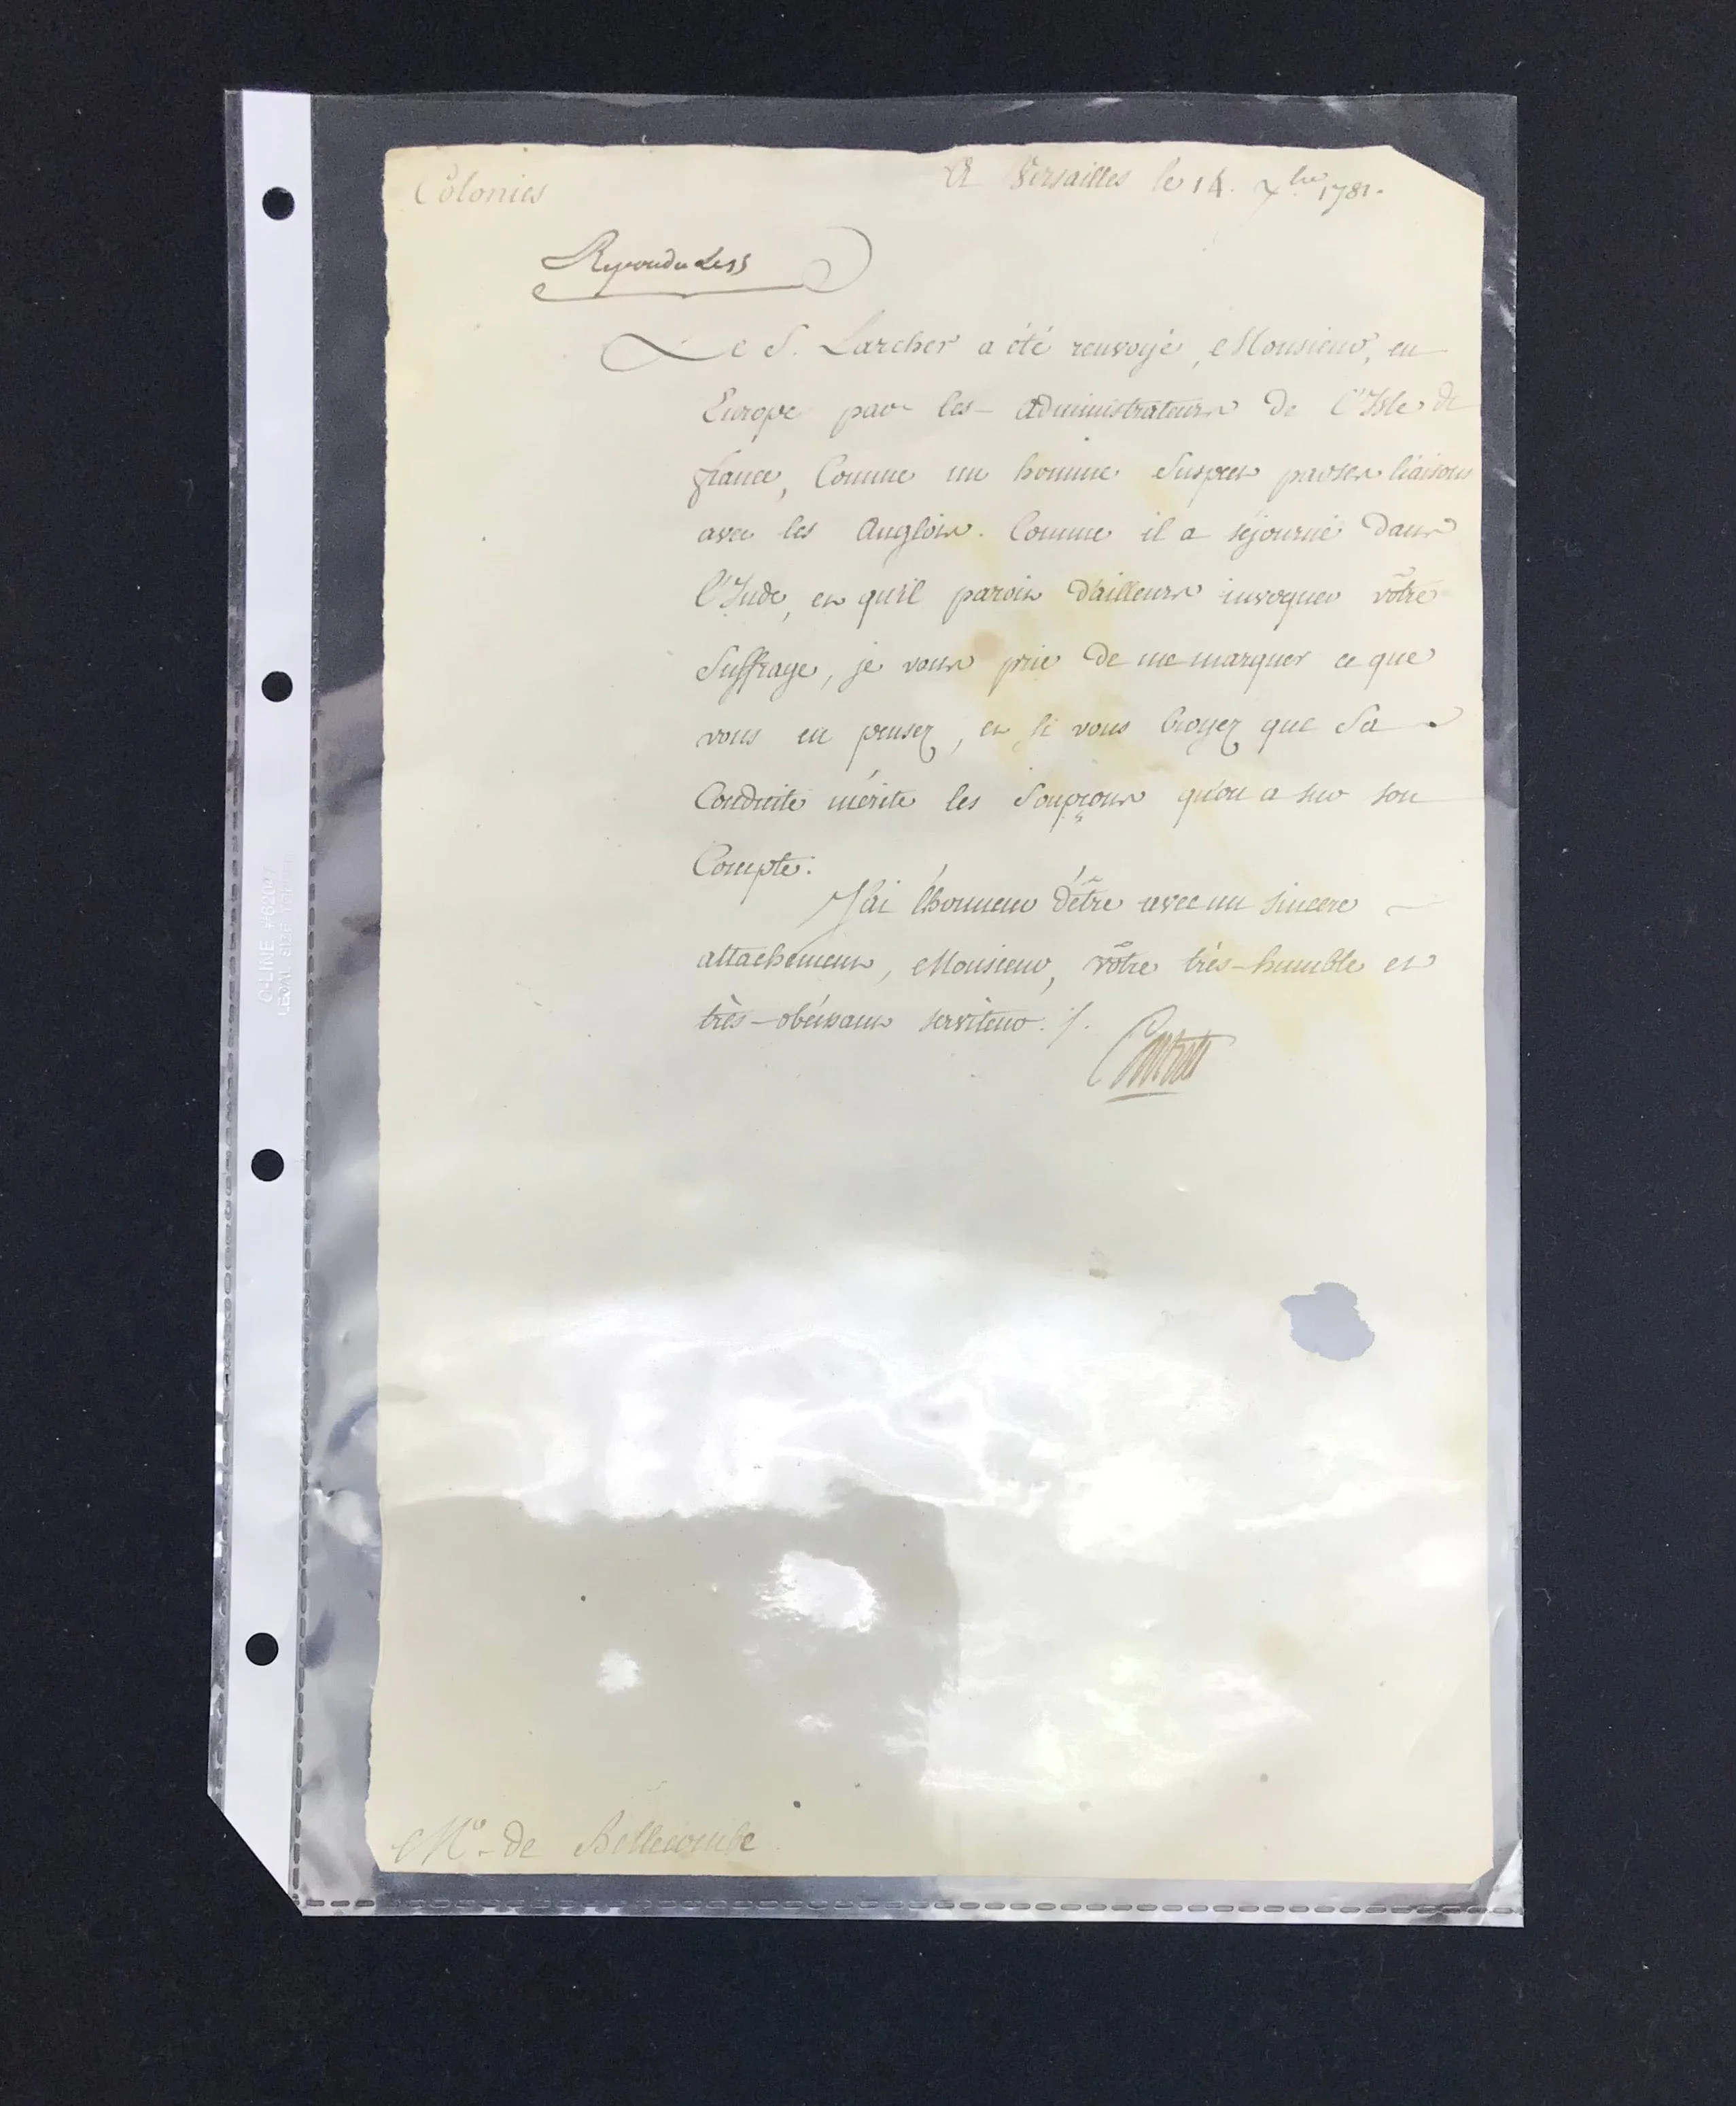 Colonies
A Versailles le 14. Xbre 1781.
Repondu Le 15
Le S. Larcher a été renvoyé, Monsieur, en
Europe par les administrateurs de l'Isle de
france, Comme un homme Suspect par ses liaisons
avec les Anglois. Comme il a séjourné dans
l'Inde, et qu'il paroit d'ailleurs invoquer vôtre
Suffrage, je vous prie de me marquer ce que
vous en pensez, et si vous Croyez que Sa
Conduite mérite les Soupçons qu'on a sur son
Compte.
J'ai l'honneur d'être avec un sincere
attachement, Monsieur, vôtre très-humble et
très-obéissant serviteur ./.
Castries
Mr. de Bellecombe
C-LINE #62047
LEGAL SIZE